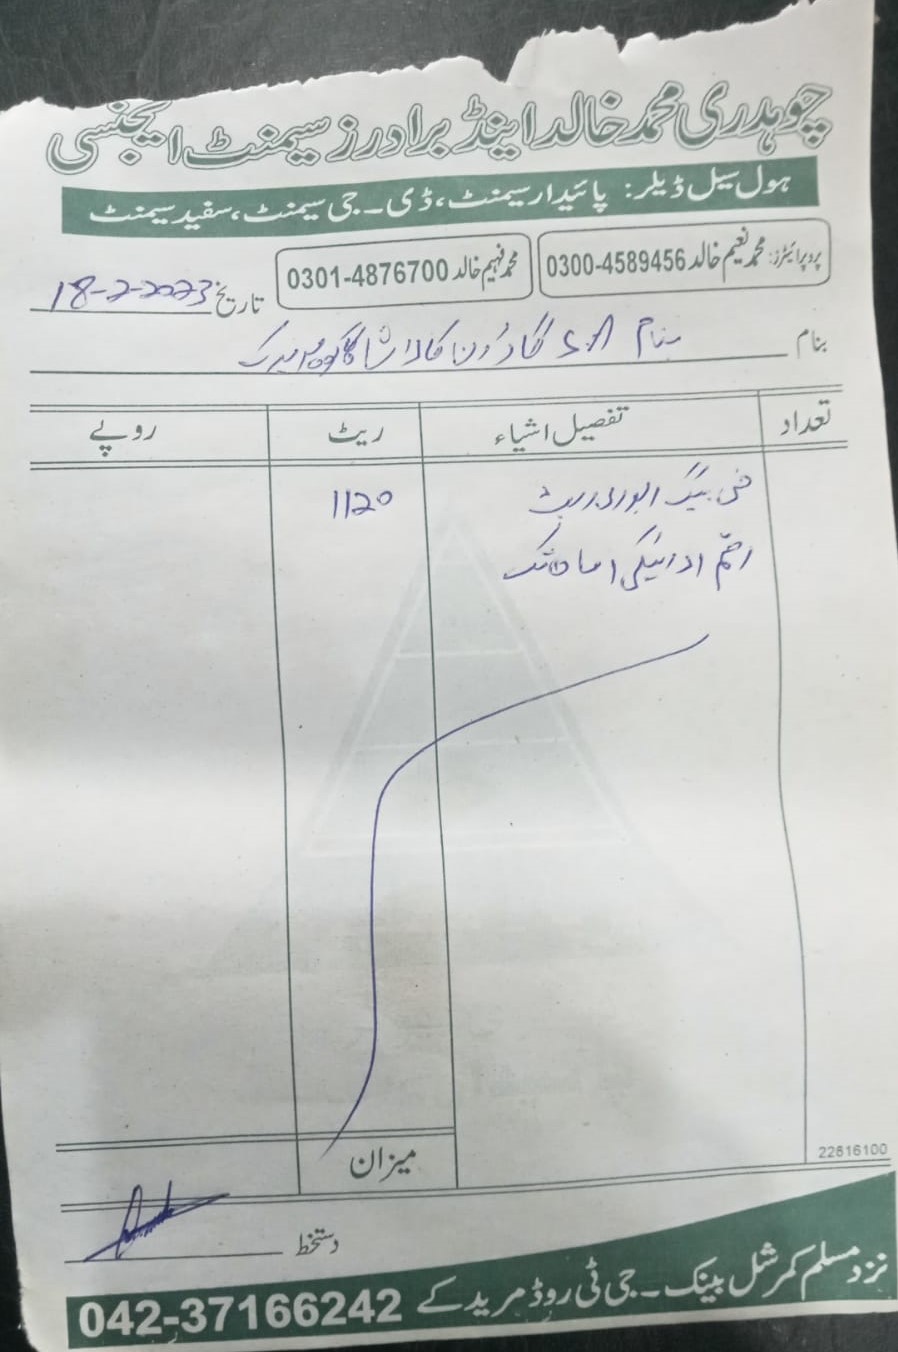 چوہدری محمد خالد اینڈ برادرز سیمنٹ ایجنسی
ہول سیل ڈیلر: پائیدار سیمنٹ، ڈی۔جی سیمنٹ، سفید سیمنٹ
پروپرائیٹرز: محمد نعیم خالد 0300-4589456 محمد فہیم خالد 0301-4876700
تاریخ 18-2-2023
بنام
تعداد تفصیل اشیاء ریٹ روپے
فی بیگ 1120
رقم ادائیگی
22616100
میزان
دستخط
نزد مسلم کمرشل بینک۔ جی ٹی روڈ مرید کے 042-37166242